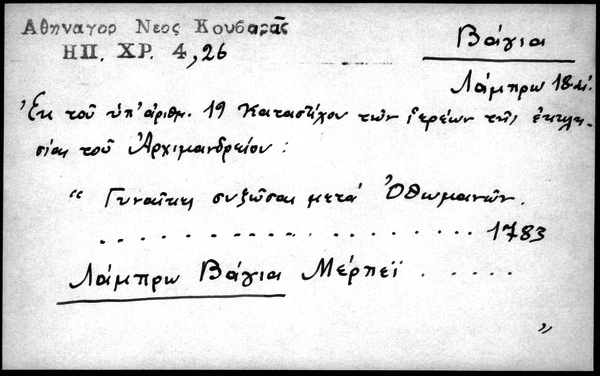 Αθηναγορ Νεος Κουβαρᾶς
ΗΠ. ΧΡ. 4,26
Βάγια
Λάμπρω 18 αἰ.
Ἐκ τοῦ ὑπ' ἀριθμ. 19 Καταστίχου τῶν ἱερέων τῆς ἐκκλη
σίας τοῦ Ἀρχιμανδρείου :
“ Γυναῖκες συζῶσαι μετά Ὀθωμανῶν.
. . . . . . . . . . . . . . . . . . 1783
Λάμπρω Βάγια Μέρπεϊ . . . . .
„